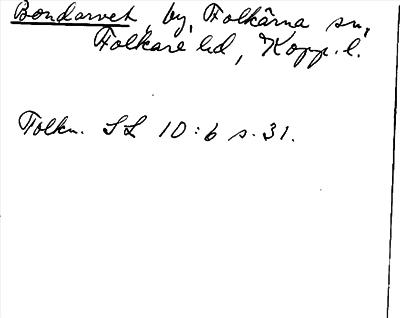 Bondarvet, by, Folkärna sn,
Folkare hd, Kopp. l.
Tolkn. SL 10:6 s. 31.